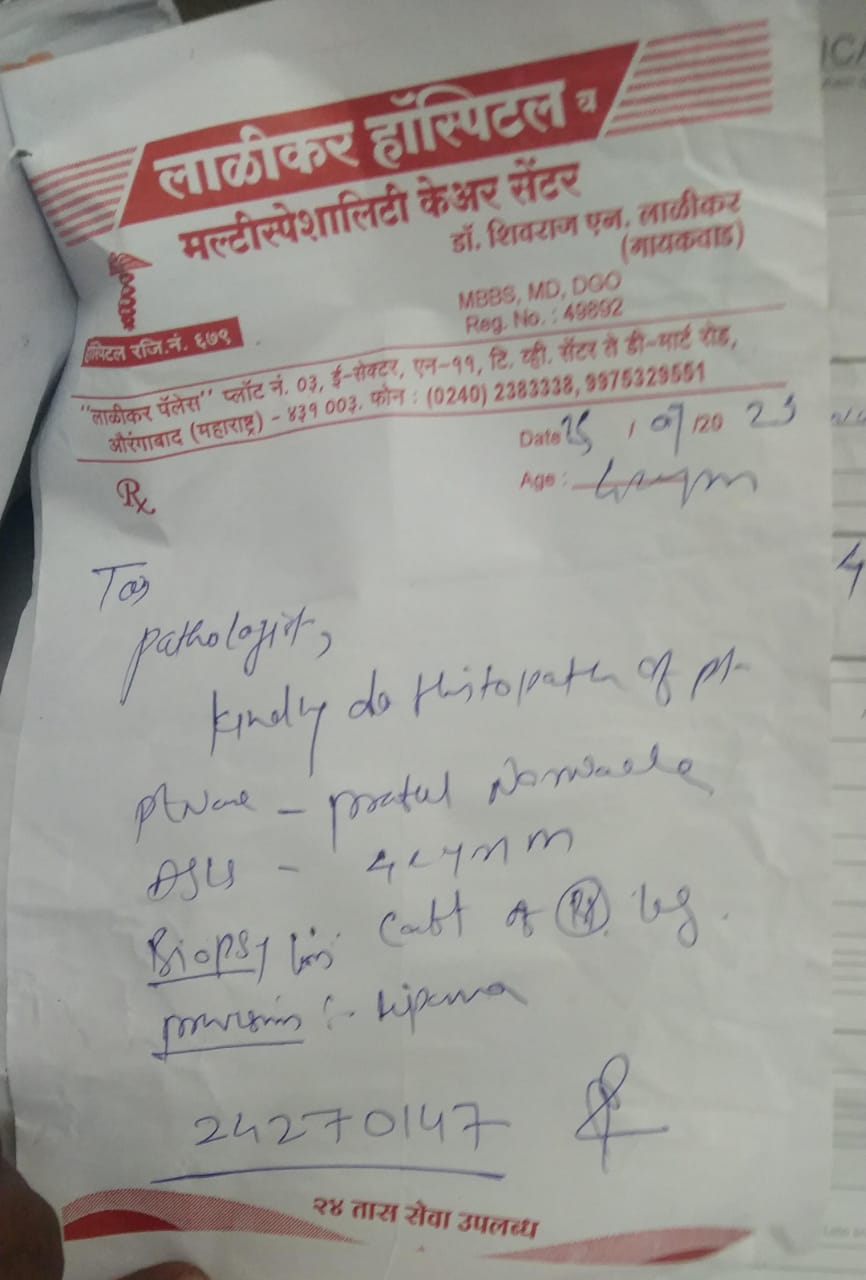 लाळीकर हॉस्पिटल व
मल्टीस्पेशालिटी केअर सेंटर
डॉ. शिवराज एन. लाळीकर
(गायकवाड)
MBBS, MD, DGO
Reg. No. : 49892
हॉस्पिटल रजि.नं. ६७९
"लाळीकर पॅलेस" प्लॉट नं. 03, ई-सेक्टर, एन-११, टि. व्ही. सेंटर ते डी-मार्ट रोड,
औरंगाबाद (महाराष्ट्र) - ४३१ 003. फोन : (0240) 2383338, 9975329551
Date 25 / 07 /20 23
Age :
Rx
To,
Pathologist,
Kindly do Histopath of pt-
pt Name -
Age -
Biopsy of Rt. leg.
:- Lipoma
24270147
२४ तास सेवा उपलब्ध